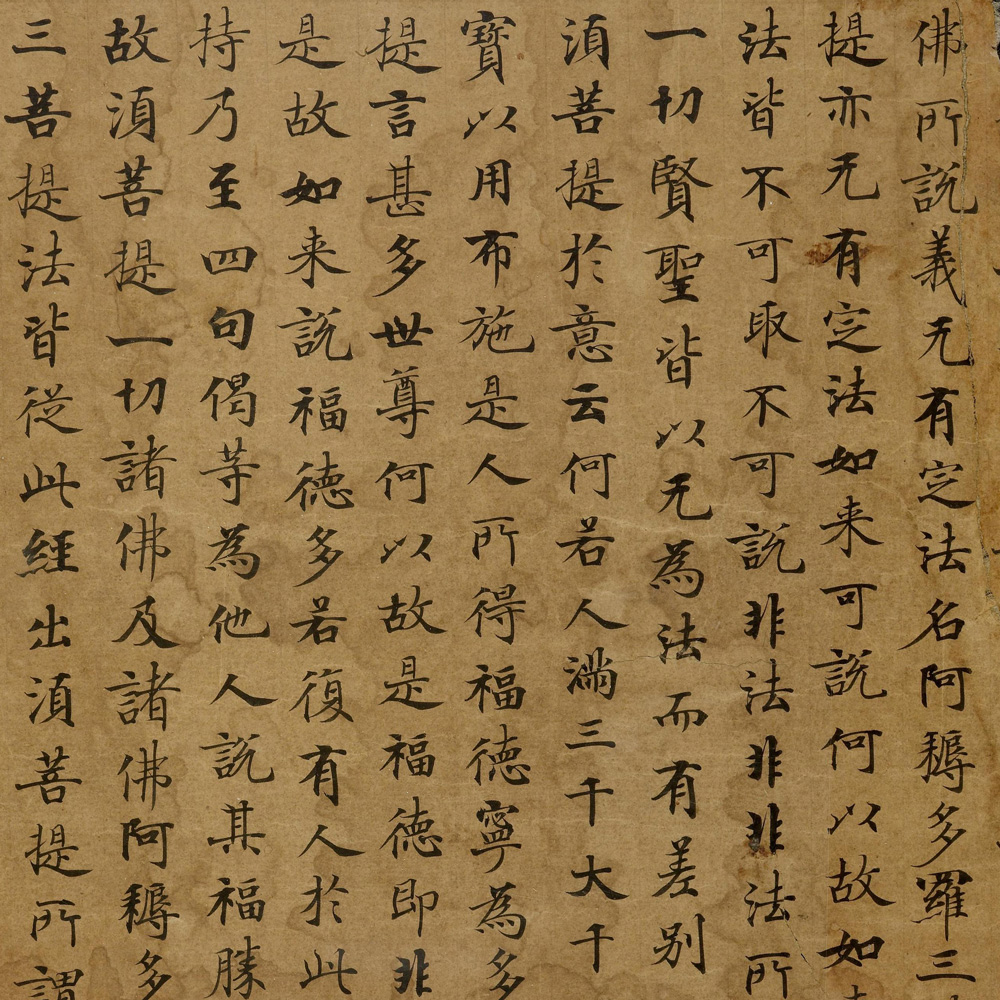 佛所說義无有定法名阿耨多羅三
提亦无有定法如来可說何以故如
法皆不可取不可說非法非非法所
一切賢聖皆以无為法而有差别
須菩提於意云何若人滿三千大千
寶以用布施是人所得福德寧為多
提言甚多世尊何以故是福德即非
是故如来說福德多若復有人於此
持乃至四句偈等為他人說其福勝
故須菩提一切諸佛及諸佛阿耨多
三菩提法皆從此經出須菩提所謂